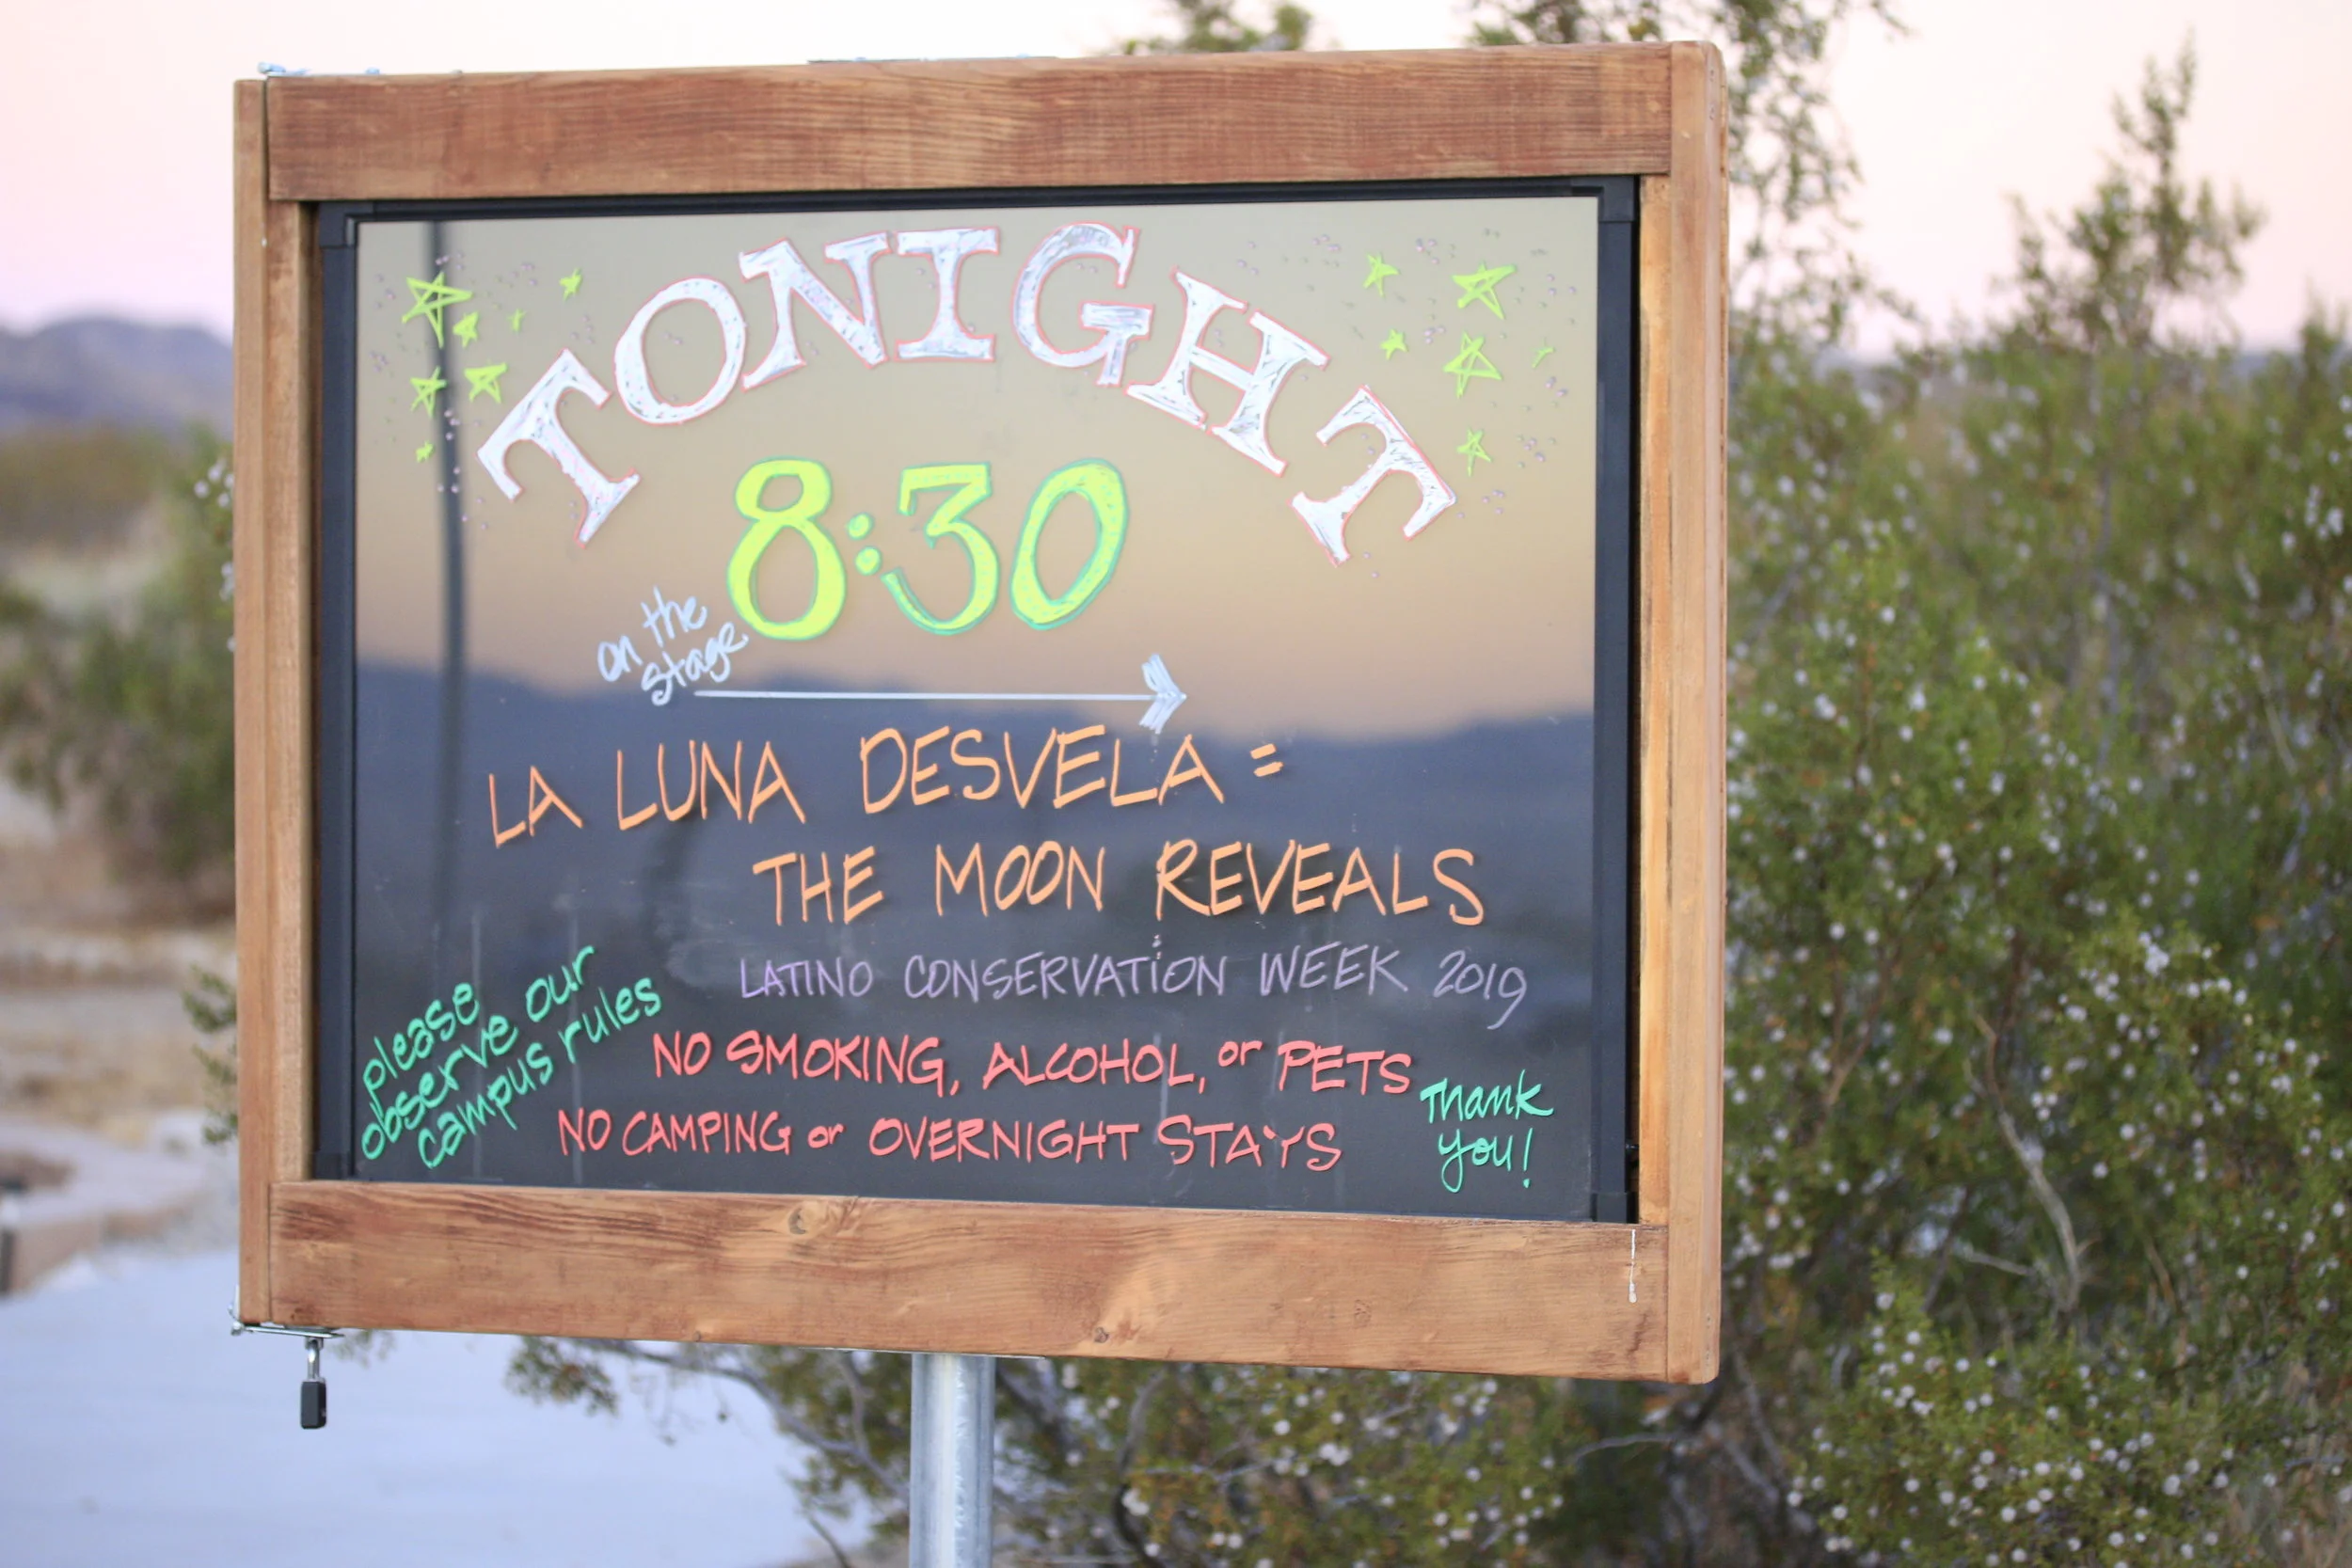 TONIGHT
8:30
on the
stage
LA LUNA DESVELA =
THE MOON REVEALS
LATINO CONSERVATION WEEK 2019
please
observe our
campus rules
NO SMOKING, ALCOHOL, or PETS
NO CAMPING or OVERNIGHT STAYS
Thank
you!